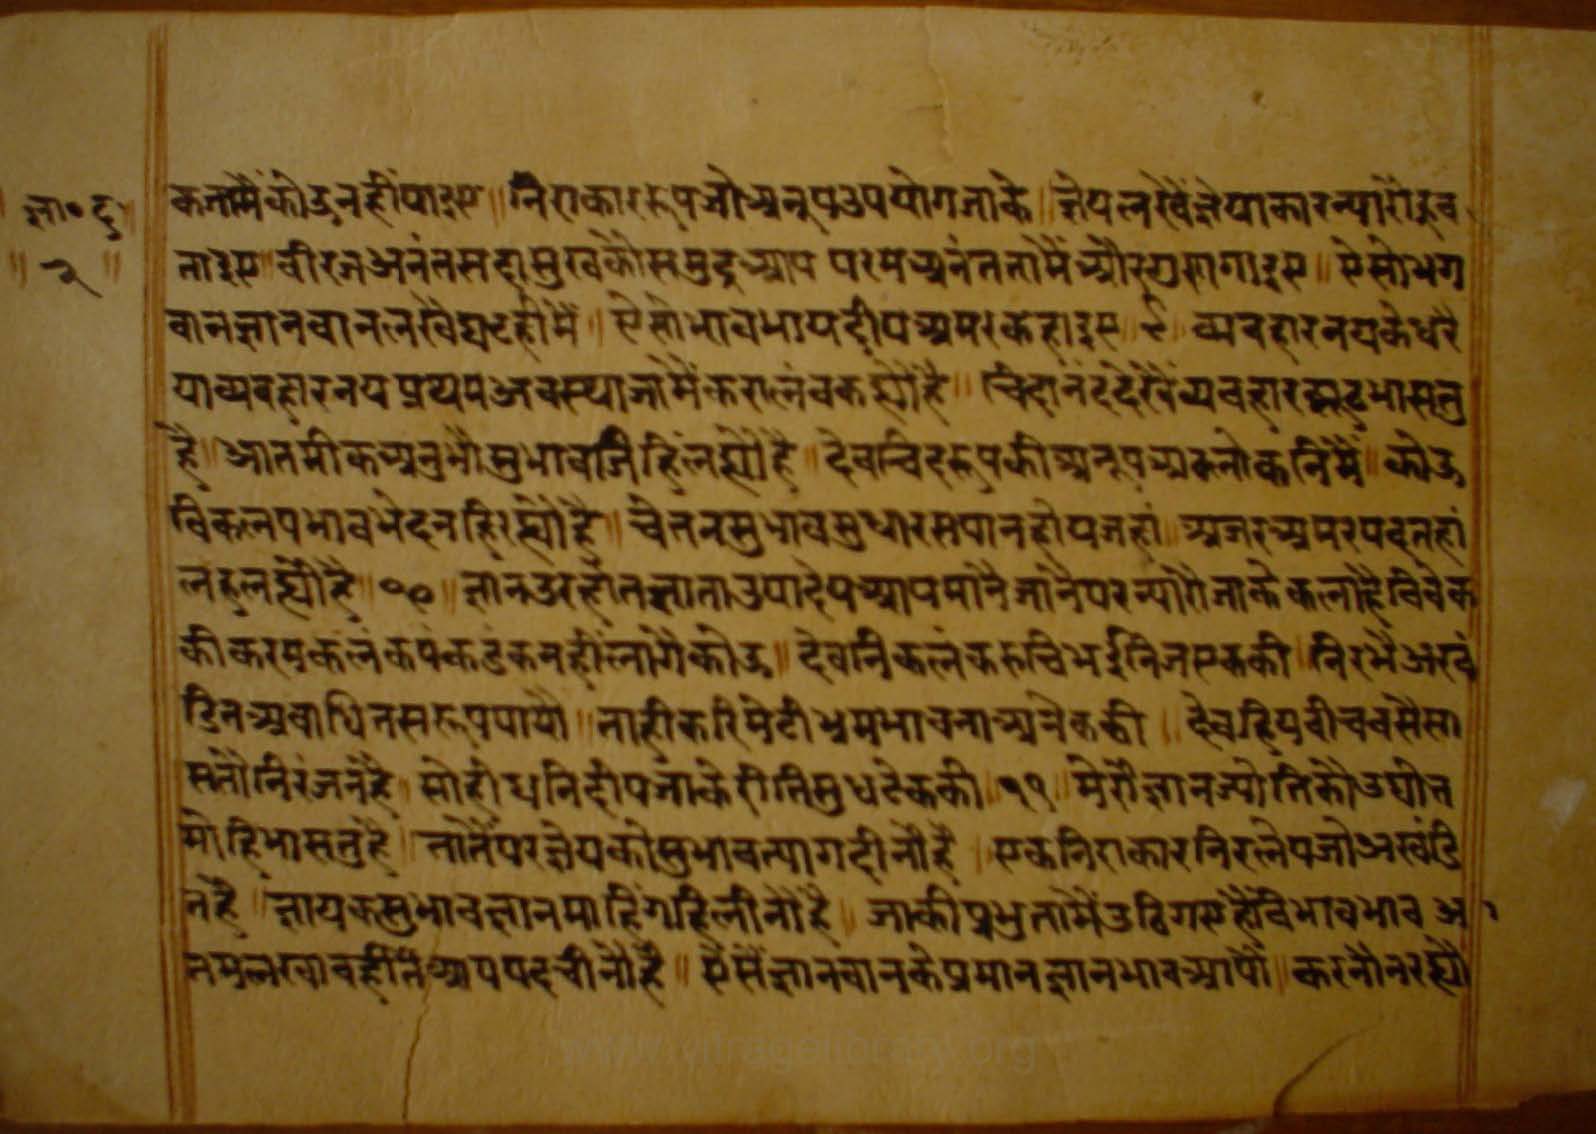 ज्ञा॰ द॰
॥ २ ॥
कतामैं कोऊ नहीं पाइए ॥ निराकार रूप जो अनूप उपयोग जाके ॥ ज्ञेय लखैं ज्ञेयाकार न्यारौ हूव
ताइए ॥ वीरज अनंत सदा सुख कौ समुद्र आप परम अनंत तामैं और गुण गाइए ॥ ऐसो भग
वान ज्ञानवान लखै घट ही मैं ॥ ऐसो भाव भाय दीप अमर कहाइए ॥ ९ ॥ व्यवहार नय के धरै
या व्यवहार नय प्रथम अवस्था जामैं करालंब कह्यौ है ॥ चिदानंद देखैं व्यवहार झूठ भासतु
है ॥ आतमीक अनुभौ सुभाव जिहिं लह्यौ है ॥ देव चिदरूप की अनूप अवलोकनि मैं ॥ कोऊ
विकलप भाव भेद नहि रह्यौ है ॥ चेतन सुभाव सुधारस पान होय जहां ॥ अजर अमर पद तहां
लह लह्यौ है ॥ १० ॥ ज्ञान उर होत ज्ञाता उपादेय आप मानै जानै पर न्यारौ जाके कला है विवेक
की करम कलंक पंक डंक नहीं लागै कोऊ ॥ देव निकलंक रुचि भई निज एक की ॥ निरभै अखं
डित अबाधित सरूप पायौ ॥ ताही करि मेटी भ्रम भावना अनेक की ॥ देव हिय बीच बसै सा
सतौ निरंजन है ॥ सो ही धनि दीप जाके रीति सुध टेक की ॥ ११ ॥ मेरौ ज्ञान ज्योति कौ उद्योत
मोहि भासतु है ॥ तातैं पर ज्ञेय कौ सुभाव त्याग दीनौ है ॥ एक निराकार निरलेप जो अखंडि
त है ॥ ज्ञायक सुभाव ज्ञान माहिं गहि लीनौ है ॥ जाकी प्रभुता मैं उठि गए हैं विभाव भाव आ
तम लखाव ही तैं आप पद चीनौ है ॥ ऐसैं ज्ञानवान के प्रमान ज्ञान भाव आपौ ॥ करनौ न रह्यौ